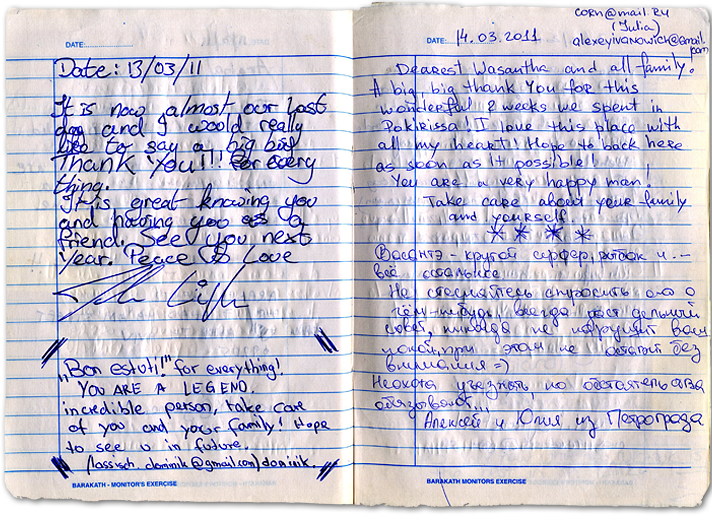 DATE:
Date: 13/03/11
It is now almost our last
day and I would really
like to say a big big
Thank You!!! For every
thing.
It is great knowing you
and having you as a
friend. See you next
Year. Peace & Love
"Bon estuti!" for everything!
YOU ARE A LEGEND.
incredible person, take care
of you and your family! Hope
to see u in future.
(lassisch.dominik@gmail.com) dominik.
BARAKATH - MONITOR'S EXERCISE
corn@mail.ru
(Julia)
alexeyivanowick@gmail.com
DATE: 14.03.2011
Dearest Wasantha and all family!
A big, big thank You for this
wonderful 2 weeks we spent in
Pokirissa! I love this place with
all my heart! Hope to back here
as soon as it possible!
You are a very happy man!
Take care about your family
and yourself.
* * * *
Васантэ - крутой серфер, рыбак и -
всё остальное
Не стесняйтесь спросить его о
чём-нибудь, всегда даст дельный
совет, никогда не нарушит ваш
покой, при этом не оставит без
внимания =)
Неохота уезжать, но обстоятельства
обязывают...
Алексей и Юлия из Петрограда
BARAKATH - MONITORS EXERCISE